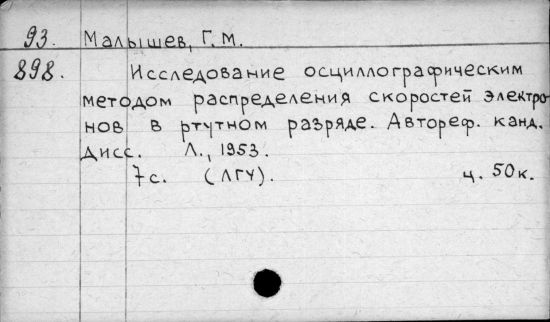 93. Малышев, Г.М.
898. Исследование осциллографическим
методом распределения скоростей электро-
нов в ртутном разряде. Автореф. канд.
дисс. Л., 1953.
7с. (ЛГУ). ц. 50к.